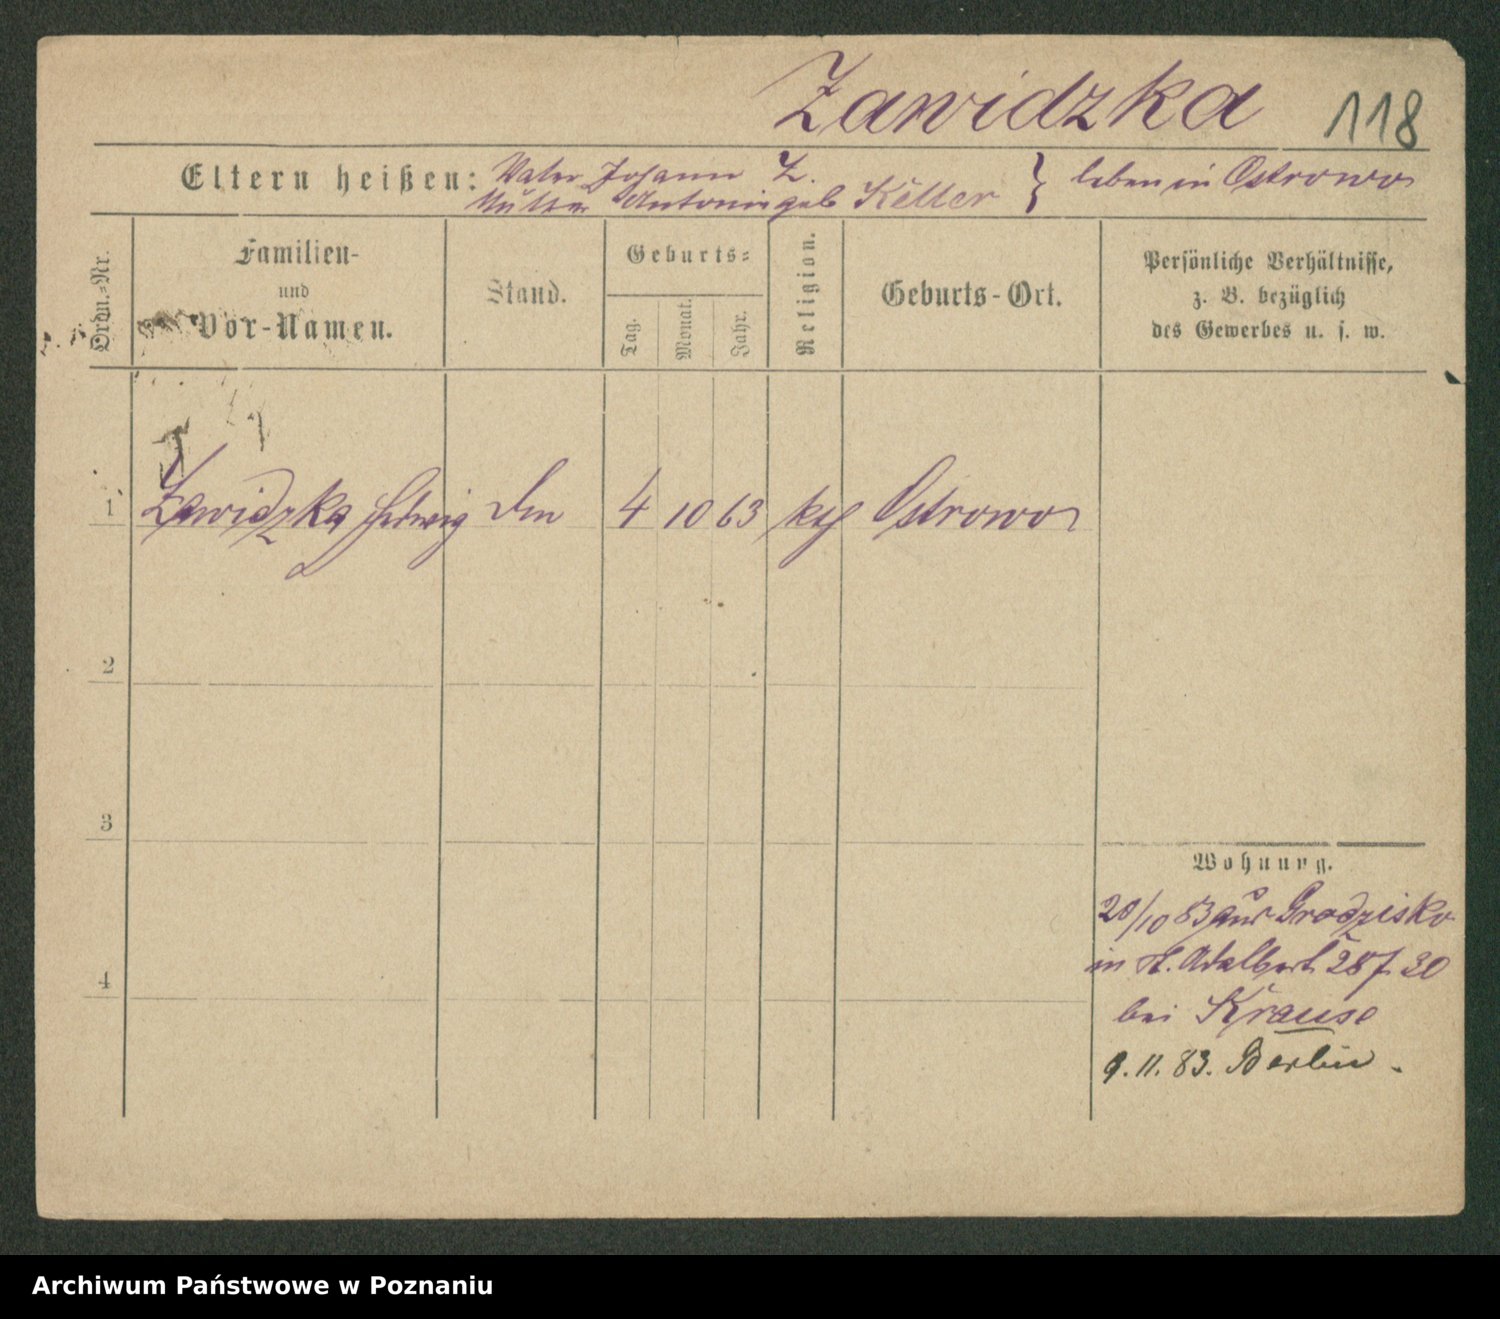 Zawidzka 118
Eltern heißen: Vater Johann Z.
Mutter Antonie geb Keller } leben in Ostrowo
Ordn.-Nr.
Familien-
und
Vor-Namen.
Stand.
Geburts-
Tag.
Monat.
Jahr.
Religion.
Geburts-Ort.
Persönliche Verhältnisse,
z. B. bezüglich
des Gewerbes u. s. w.
1 Zawidzka Hedwig 4 10 63 kth Ostrowo
2
3
4
Wohnung.
20/10 83 aus Grodzisko
in St. Adalbert 28
bei Krause
9.11.83. Berlin.
Archiwum Państwowe w Poznaniu